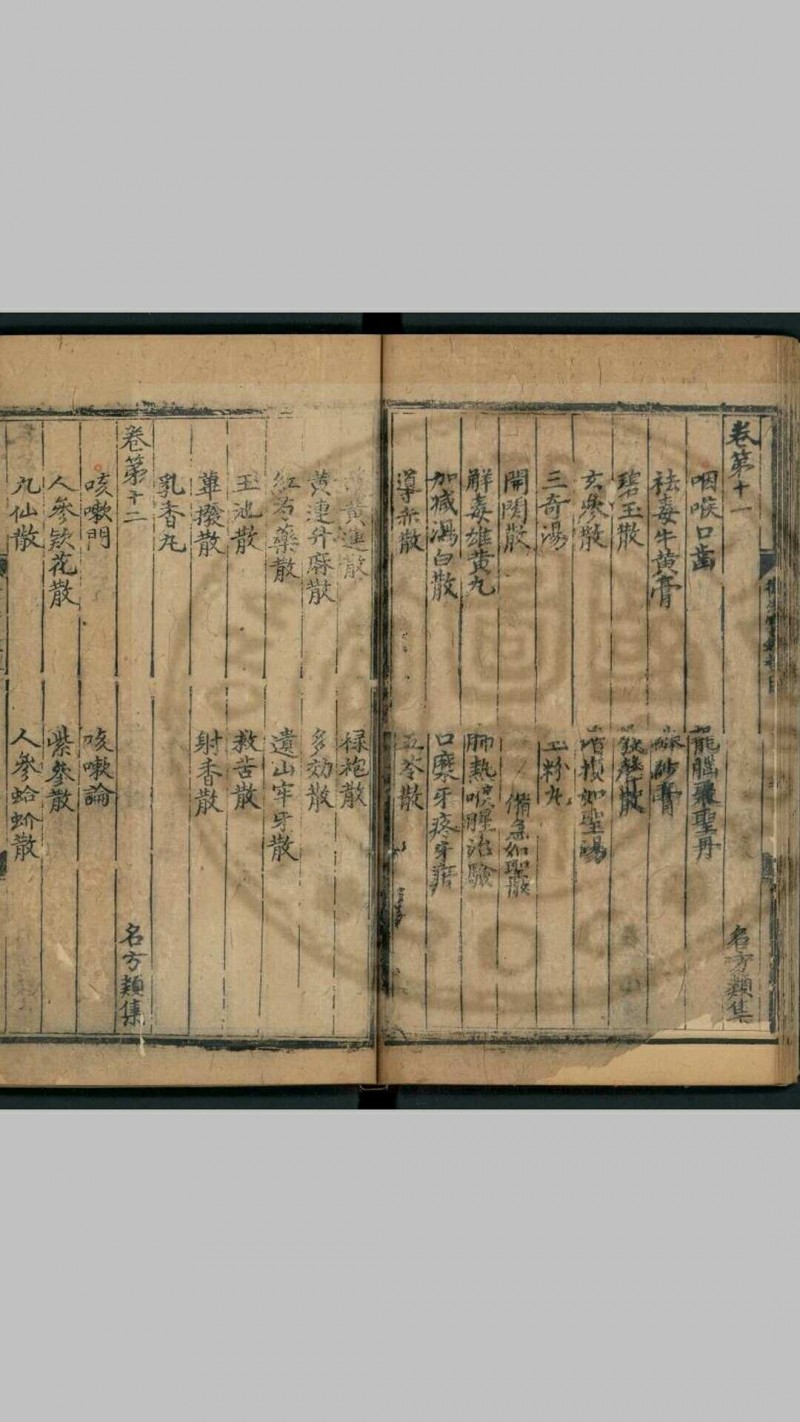 卷第十一 名方類集
咽喉口齒 龍腦聖丹
祛毒牛黃膏 砂膏
碧玉散 發聲散
玄參散 增損如聖湯
三奇湯 玉粉丸
開関散 備急如聖散
解毒雄黃丸 肺熱喉腥治驗
加減瀉白散 口糜牙疼牙
導赤散 五苓散
黃連散 綠袍散
黃連升麻散 多効散
紅芍藥散 遺山牢牙散
玉池散 救苦散
蓽撥散 射香散
乳香丸
卷第十二 名方類集
咳嗽門 咳嗽論
人參款花散 紫參散
九仙散 人參蛤蚧散